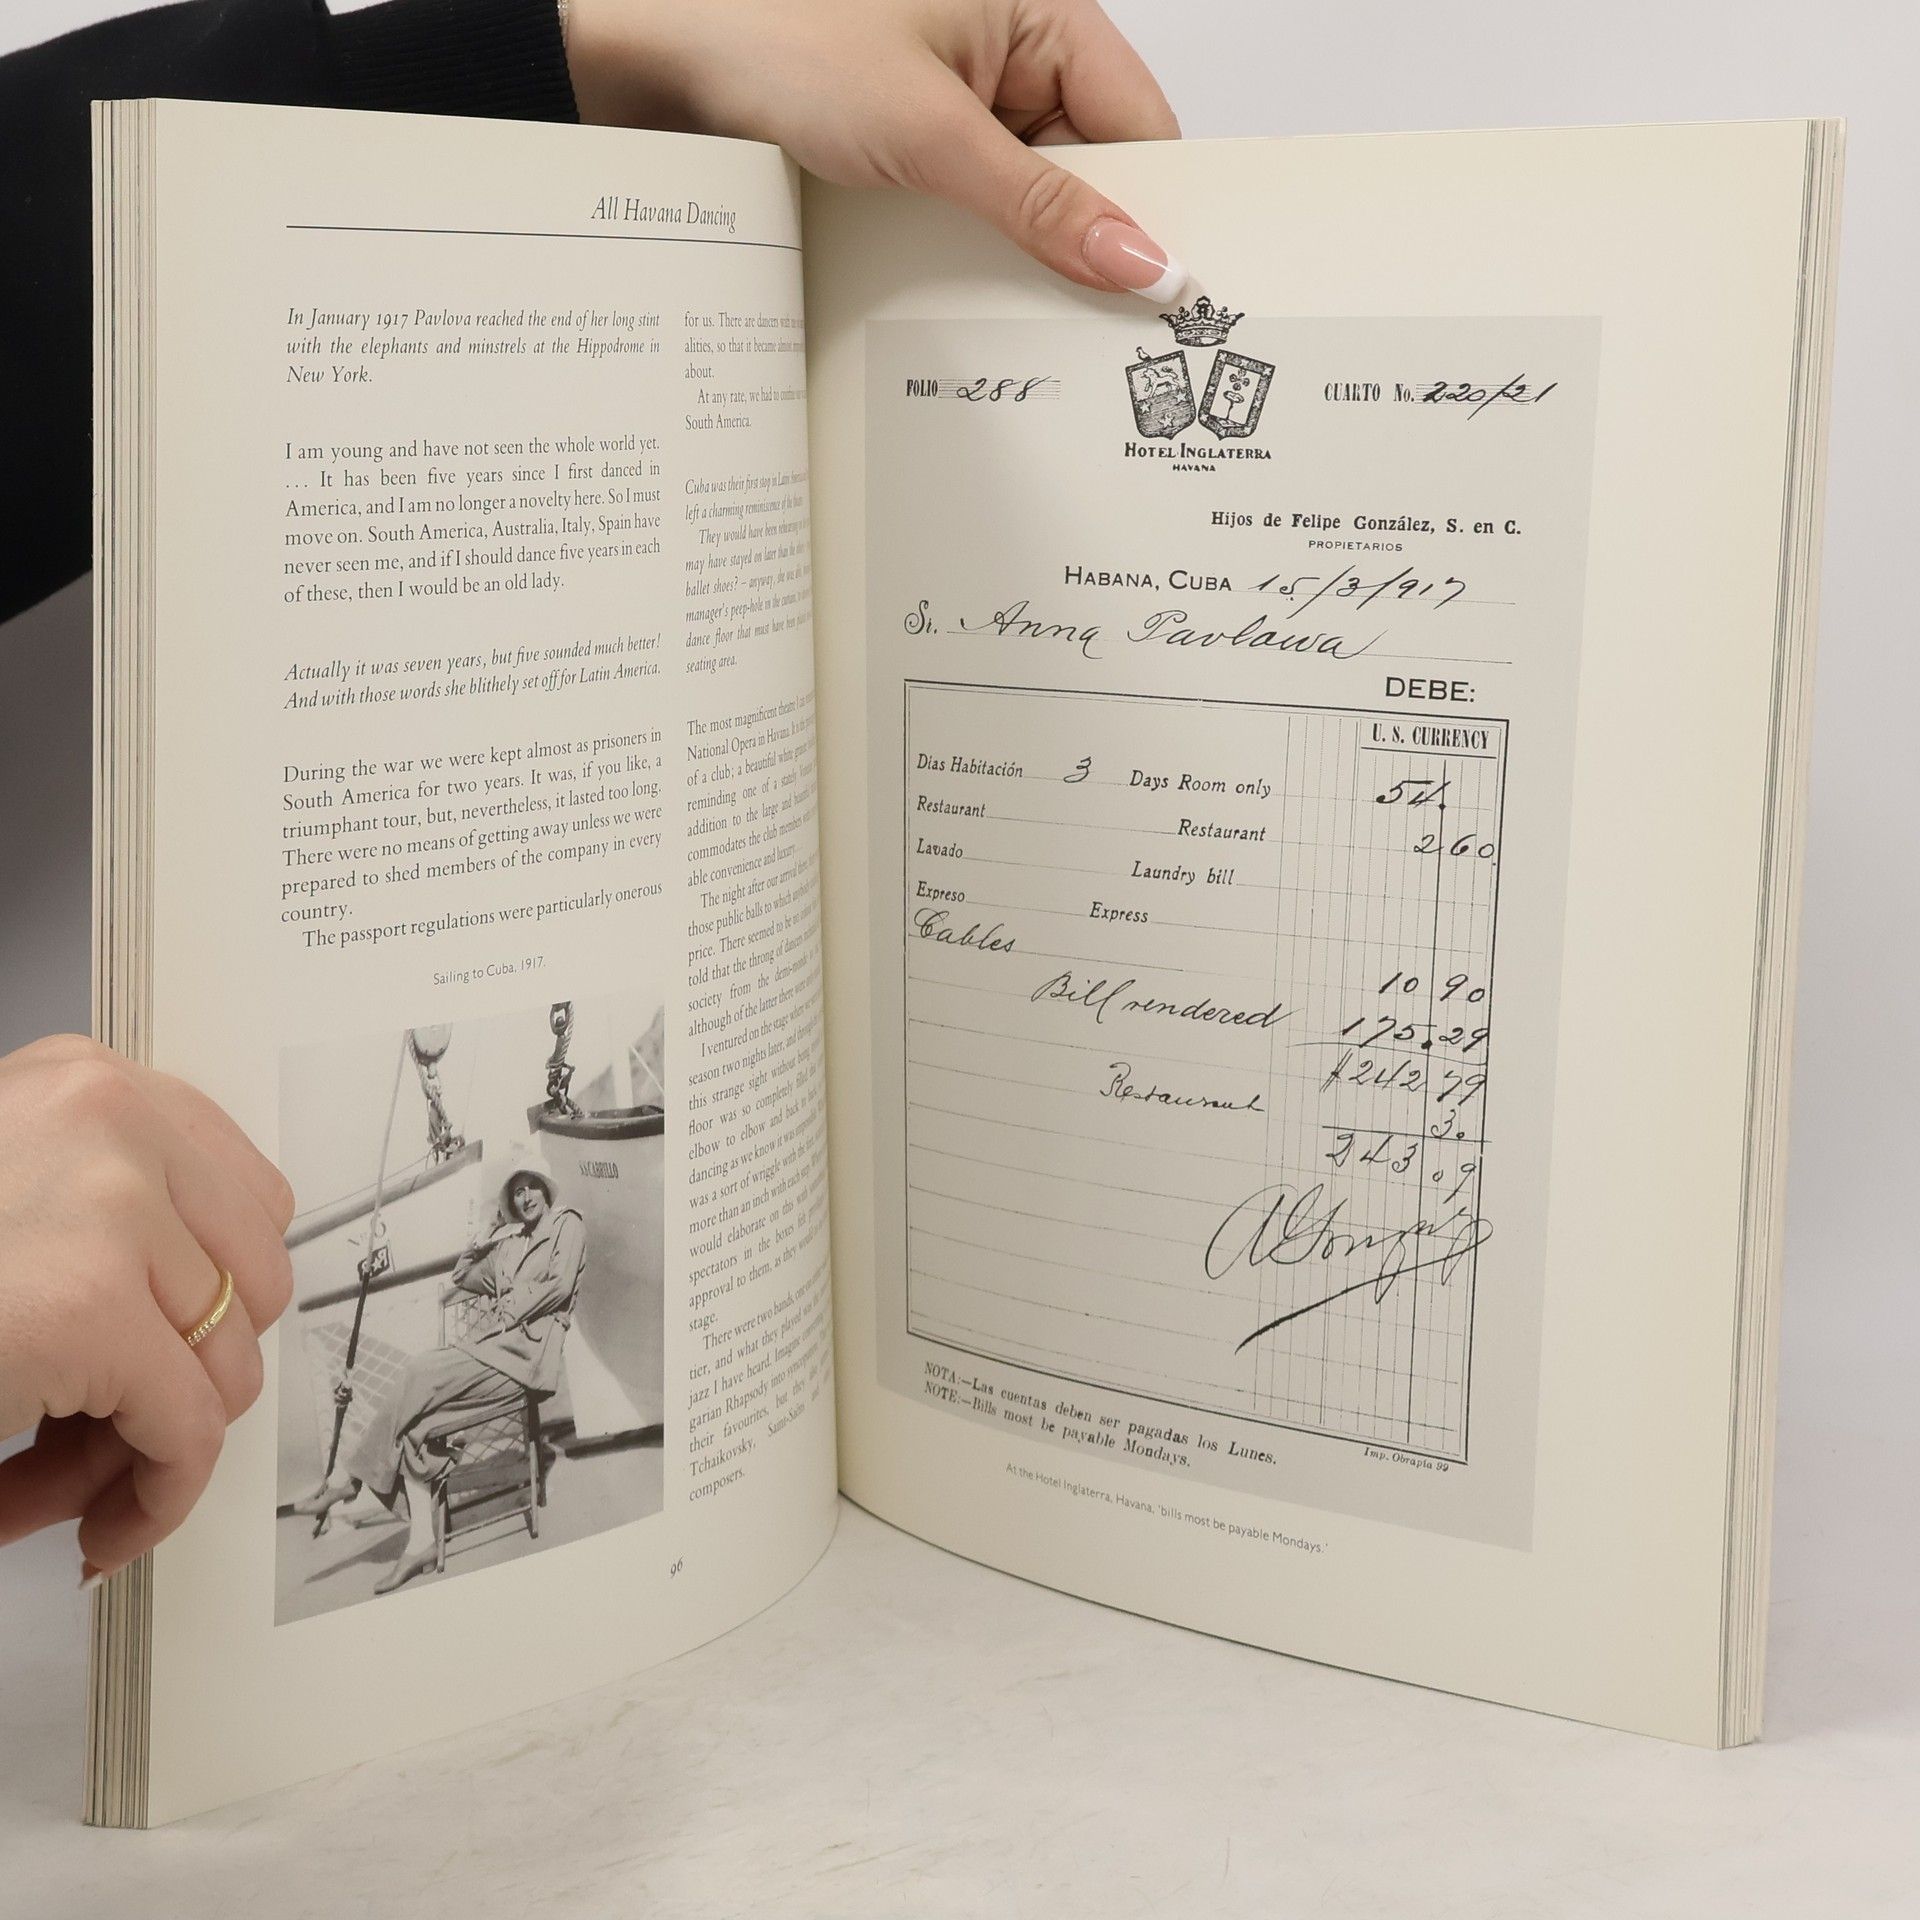 All Havana Dancing
In January 1917 Pavlova reached the end of her long stint
with the elephants and minstrels at the Hippodrome in
New York.
I am young and have not seen the whole world yet.
... It has been five years since I first danced in
America, and I am no longer a novelty here. So I must
move on. South America, Australia, Italy, Spain have
never seen me, and if I should dance five years in each
of these, then I would be an old lady.
Actually it was seven years, but five sounded much better!
And with those words she blithely set off for Latin America.
During the war we were kept almost as prisoners in
South America for two years. It was, if you like, a
triumphant tour, but, nevertheless, it lasted too long.
There were no means of getting away unless we were
prepared to shed members of the company in every
country.
The passport regulations were particularly onerous
Sailing to Cuba, 1917.
S.S. CABRILLO
for us. There are dancers with
alities, so that it became almost
about.
At any rate, we had to continue our
South America.
Cuba was their first stop in Latin America
left a charming reminiscence of the
They would have been rehearsing
may have stayed on later than the
ballet shoes? – anyway, she was able,
manager's peep-hole in the curtain, to
dance floor that must have been
seating area.
The most magnificent theatre I can
National Opera in Havana. It is the
of a club; a beautiful white
reminding one of a stately
addition to the large and beautiful
commodates the club members with
able convenience and luxury...
The night after our arrival there
those public balls to which anybody
price. There seemed to be no
told that the throng of dancers
society from the demi-monde to the
although of the latter there were
I ventured on the stage where we
season two nights later, and through
this strange sight without being
floor was so completely filled that
elbow to elbow and back to back,
dancing as we know it was impossible
was a sort of wriggle with the feet,
more than an inch with each step.
would elaborate on this with
spectators in the boxes
approval to them, as they would
stage.
There were two bands, one
tier, and what they played was the
jazz I have heard. Imagine
garian Rhapsody into syncopation
their favourites, but they also
Tchaikovsky, Saint-Saëns and
composers.
96
FOLIO 288
CUARTO No. 220/21
HOTEL INGLATERRA
HAVANA
Hijos de Felipe González, S. en C.
PROPIETARIOS
HABANA, CUBA 15/3/917
Sr. Anna Pavlowa
DEBE:
U. S. CURRENCY
Dias Habitación 3 Days Room only 54.
Restaurant Restaurant 2 60
Lavado Laundry bill
Expreso Express
Cables 10 90
Bill rendered 175.29
$242 79
Restaurant 3.
243 09
NOTA:—Las cuentas deben ser pagadas los Lunes.
NOTE:—Bills most be payable Mondays.
Imp. Obrapia 99
At the Hotel Inglaterra, Havana, 'bills most be payable Mondays.'